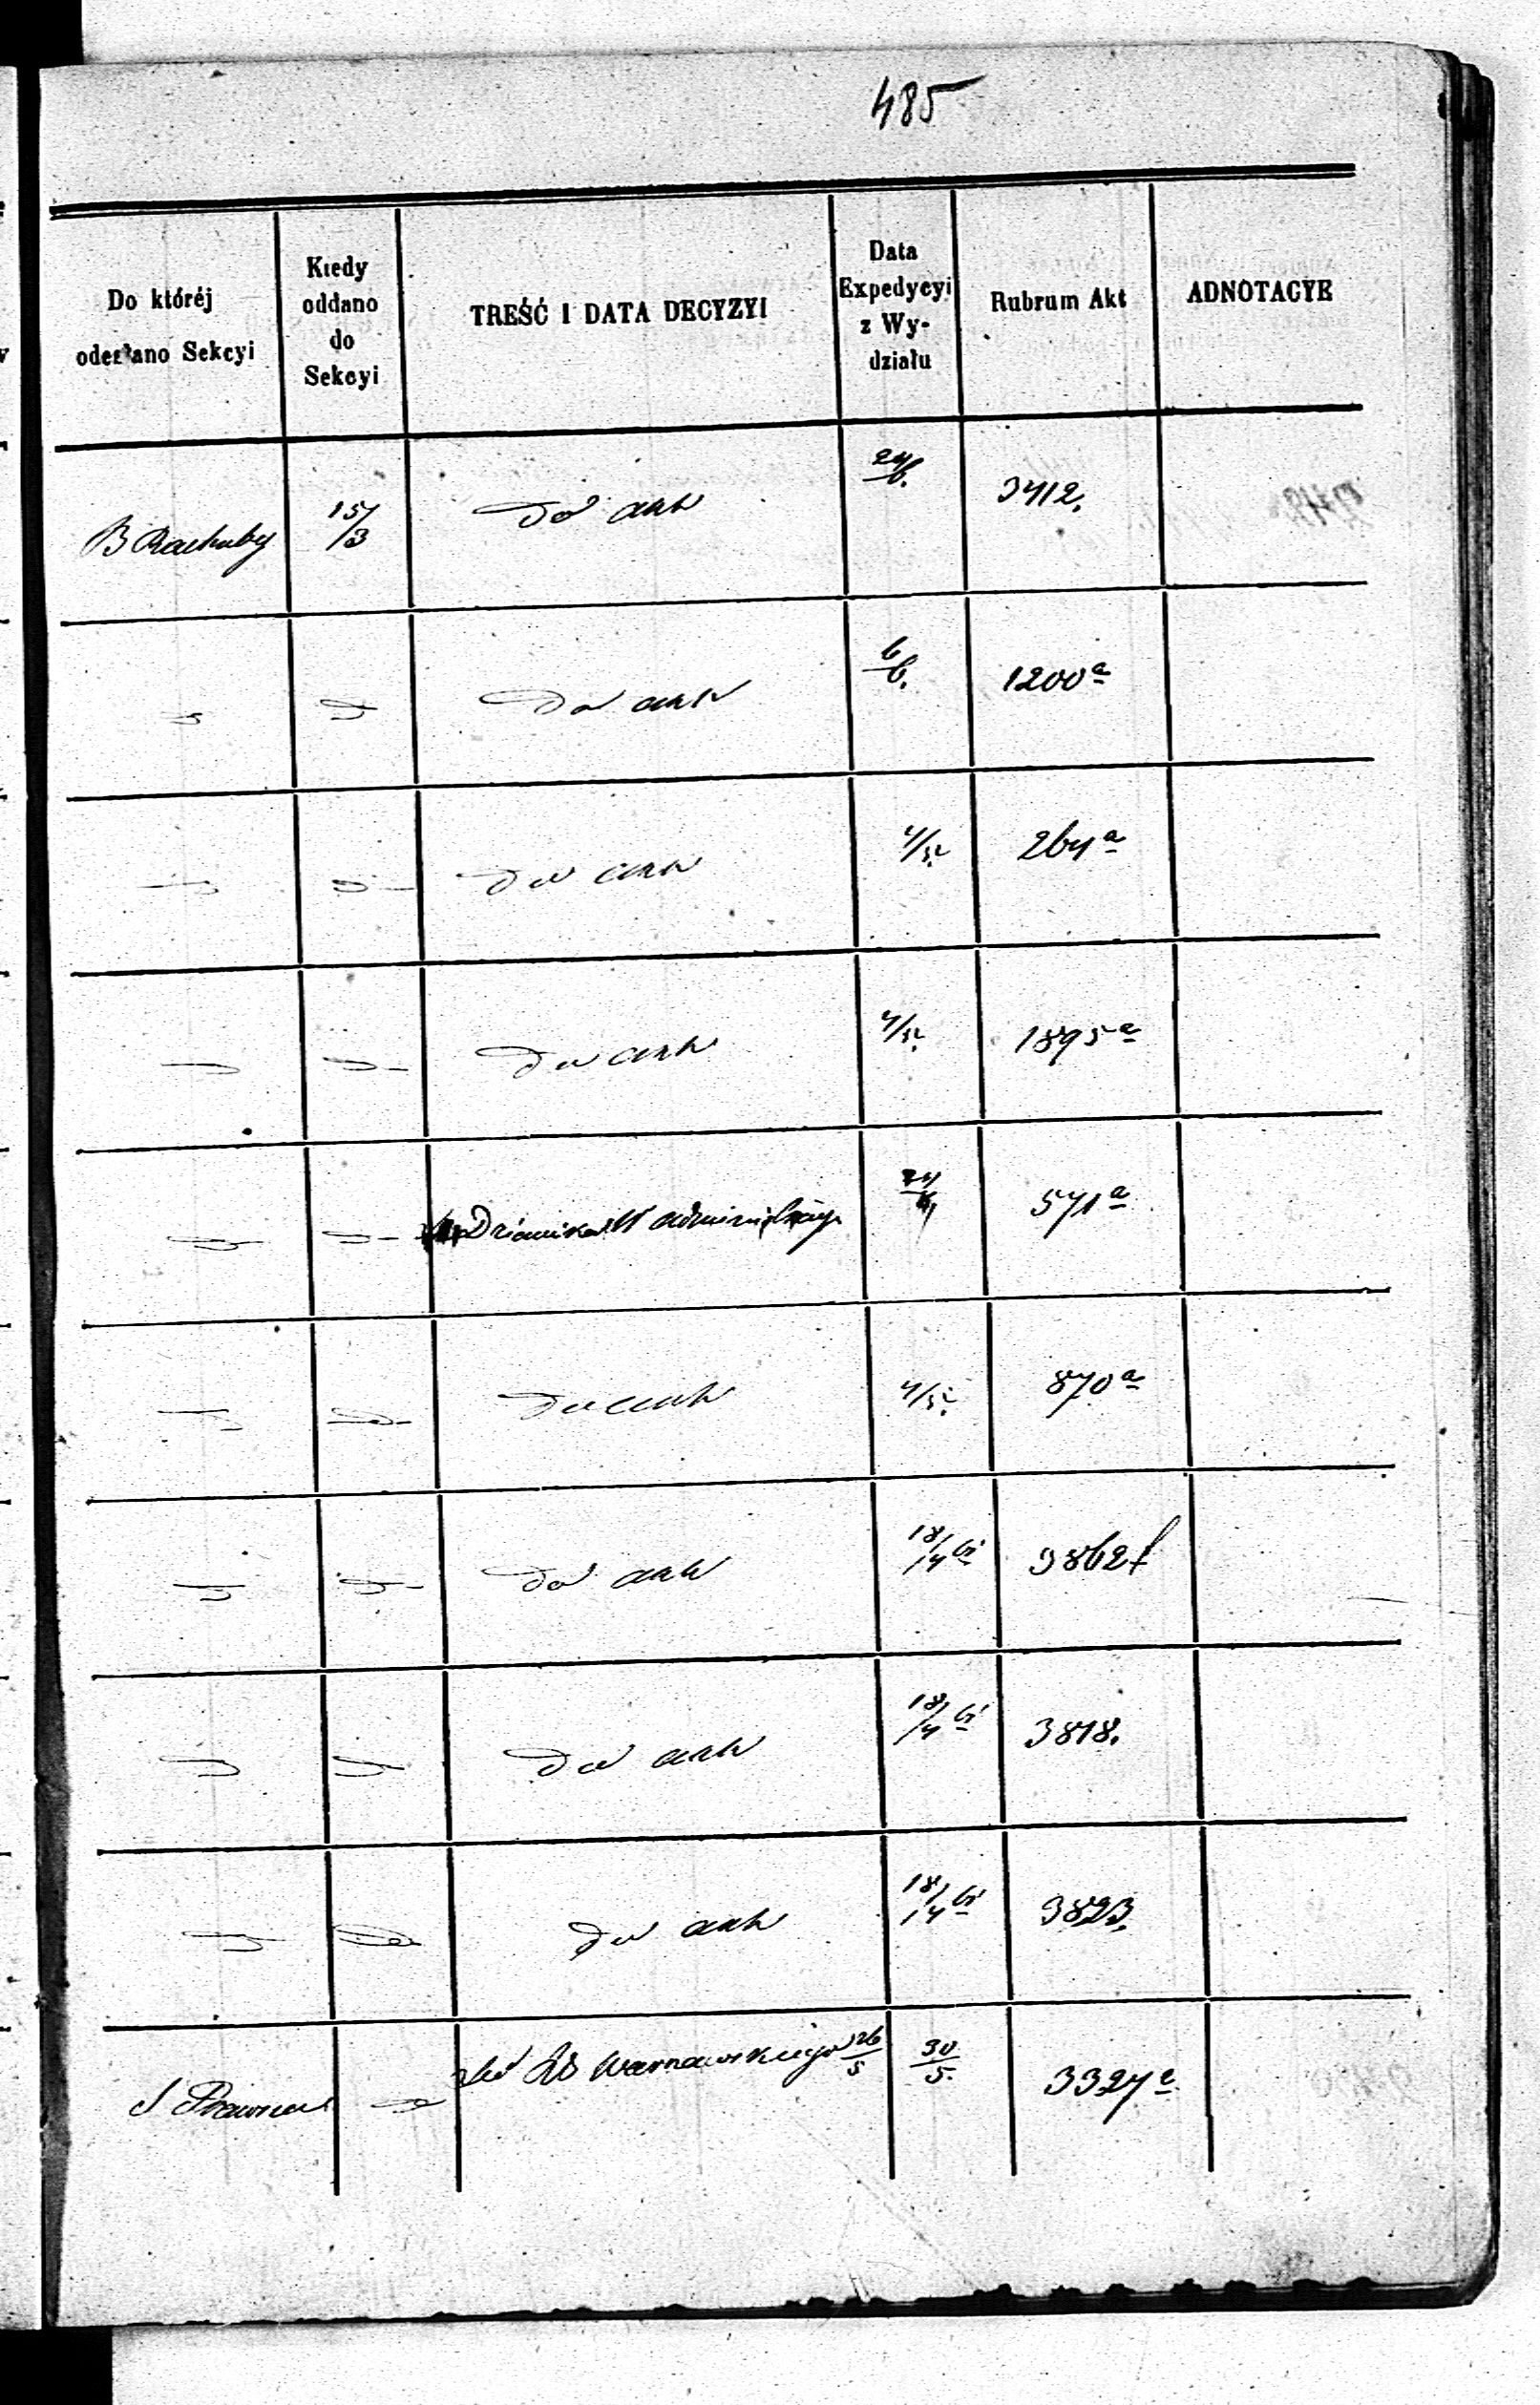 485
Do któréj odesłano Sekcyi
Kiedy oddano do Sekcyi
TREŚĆ I DATA DECYZYI
Data Expedycyi z Wydziału
Rubrum Akt
ADNOTACYE
B Rachuby 15/3 do akt 24/6. 3412.
do akt 6/6. 1200a
do akt 264a
do akt 1895a
571a
do akt 870a
do akt 18/4 3862f
do akt 18/4 3818.
do akt 18/4 3823.
S Prawna Warnawskiego 26/5 30/5. 3327a